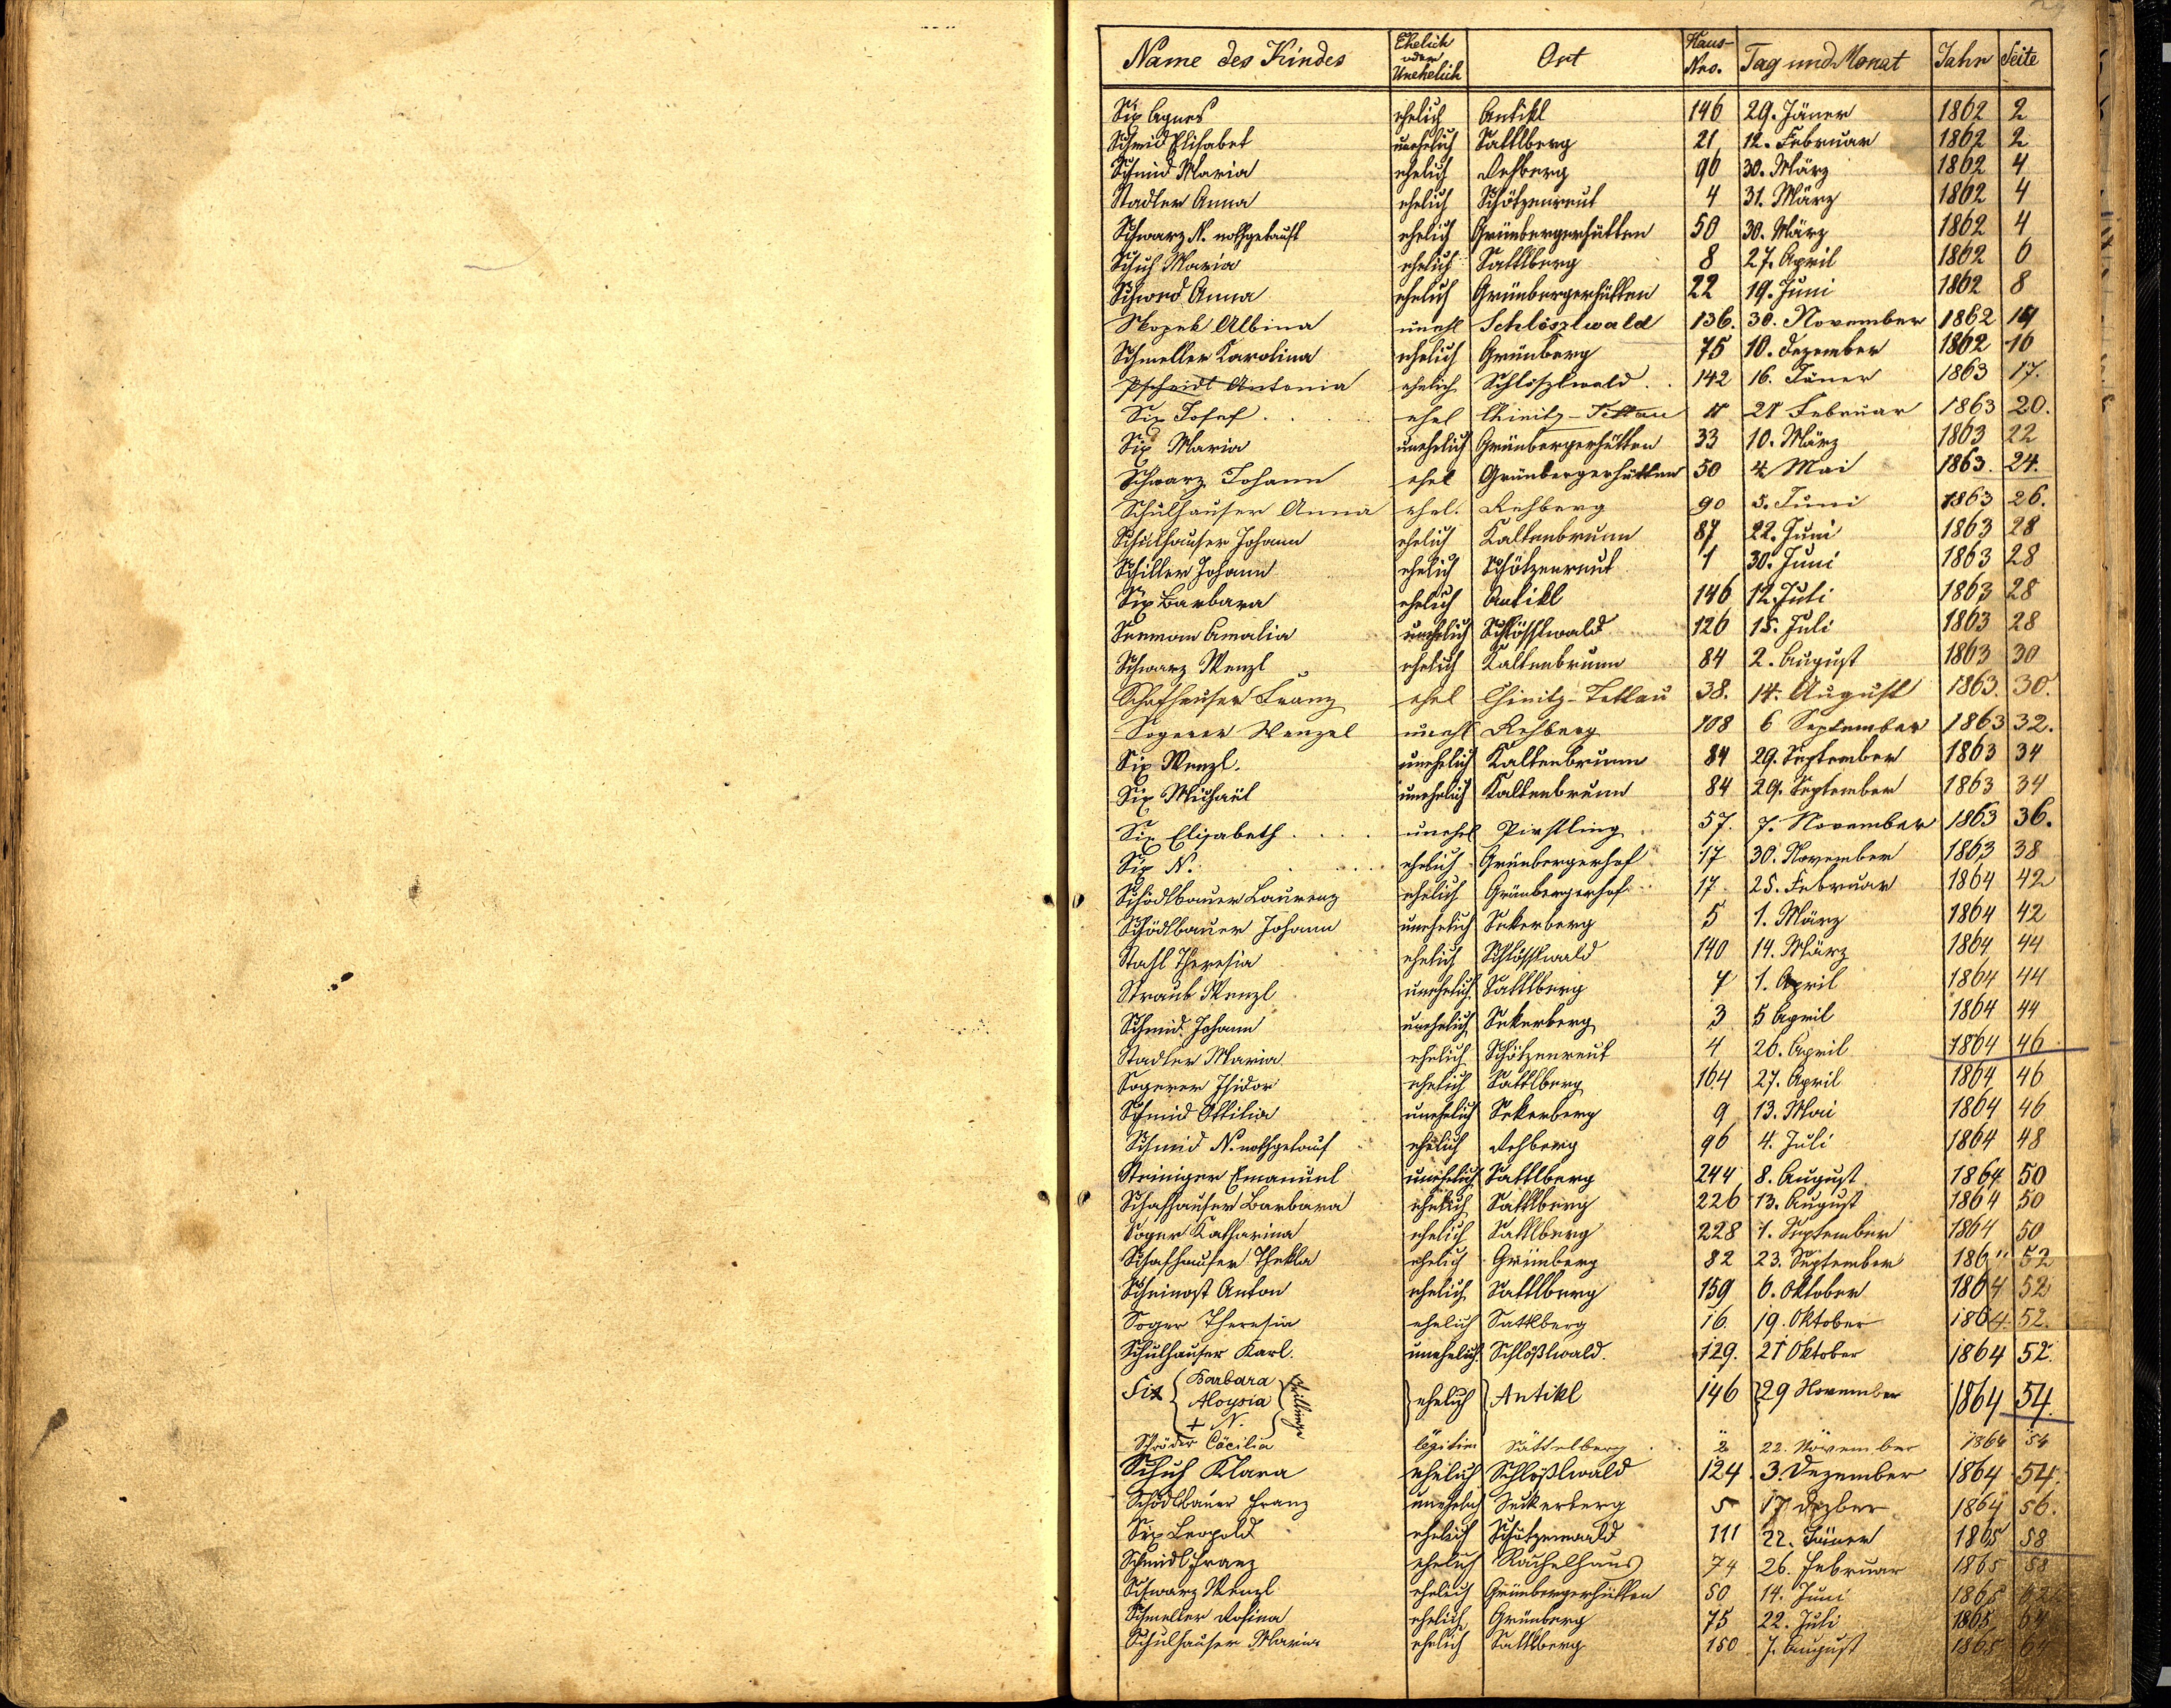 Name des Kindes Ehelich oder Unehelich Ort Haus-Nro. Tag und Monat Jahr Seite
Six Agnes ehelich Antikl 146 29. Jäner 1862 2
Schmid Elisabet unehelich Sattlberg 21 12. Februar 1862 2
Schmid Maria ehelich Rehberg 96 30. März 1862 4
Stadler Anna ehelich Schötzenreut 4 31. März 1862 4
Schwarz N. nothgetauft ehelich Grünbergerhütten 50 30. März 1862 4
Schuh Maria ehelich Sattlberg 8 27. April 1862 6
Schwed Anna ehelich Grünbergerhütten 22 19. Juni 1862 8
Skopek Albina unehl Schlöszlwald 136. 30. November 1862
Schmeller Karolina ehelich Grünberg 75 10. Dezember 1862 16
Pscheidt Antonia ehelich Schlöszlwald 142 16. Jäner 1863 17.
Six Josef ehel Chinitz-Tettau 21 Februar 1863 20.
Six Maria unehelich Grünbergerhütten 33 10. März 1863 22
Schwarz Johann ehel Grünbergerhütten 50 4 Mai 1863. 24.
Schulhauser Anna ehel. Rehberg 90 5. Juni 1863 26.
Schulhauser Johann ehelich Kaltenbrunn 87 22. Juni 1863 28
Schiller Johann ehelich Schötzenreut 1 30. Juni 1863 28
Six Barbara ehelich Antikl 146 12. Juli 1863 28
Amalia unehelich Schlösslwald 126 15. Juli 1863 28
Schwarz Wenzl ehelich Kaltenbrunn 84 2. August 1863 30
Schafhauser Franz ehel Chinitz-Tettau 38. 14. August 1863. 30.
Sogerer Wenzel unehl Rehberg 108 6 September 1863 32.
Six Wenzl. unehelich Kaltenbrunn 84 29. September 1863 34
Six Michaël unehelich Kaltenbrunn 84 29. September 1863 34
Six Elisabeth unehel Pirstling 57. 7. November 1863 36.
Six N. ehelich Grünbergerhof 17 30. November 1863 38
Schödlbauer Laurenz ehelich Grünbergerhof 17 25. Februar 1864 42
Schödlbauer Johann unehelich Sekerberg 5 1. März 1864 42
Stahl Theresia ehelich Schlösslwald 140 14. März 1864 44
Straub Wenzl unehelich Sattlberg 7 1. April 1864 44
Schmid Johann unehelich Sekerberg 3 5 April 1864 44
Stadler Maria ehelich Schötzenreut 4 26. April 1864 46
Sogerer Isidor ehelich Sattlberg 164 27. April 1864 46
Schmid Ottilia unehelich Sekerberg 9 13. Mai 1864 46
Schmid N. nothgetauf ehelich Rehberg 96 4. Juli 1864 48
Steiniger Emanuel unehelich Sattlberg 244 8. August 1864 50
Schafhauser Barbara ehelich Sattlberg 226 13. August 1864 50
Soger Katharina ehelich Sattlberg 228 1. September 1864 50
Schafhauser Thekla ehelich Grünberg 82 23. September 52
Scheinost Anton ehelich Sattlberg 159 6. Oktober 1864 52
Soger Theresia ehelich Sattlberg 16 19. Oktober 1864. 52.
Schulhauser Karl. unehelich Schlößlwald. 129. 21 Oktober 1864 52.
Six { Barbara Aloysia + N. } Drillinge ehelich Antikl 146 29 November 1864 54.
Schröder Cäcilia legitim Sattelberg 2 22. November 1864 54
Schuh Klara ehelich Schlößlwald 124 3. Dezember 1864 54.
Schödlbauer Franz unehelich Seckerberg 5 17 Dezber 1864 56.
Six Leopold ehelich Schätzenwald 111 22. Jäner 1865 58
Schmidl Franz ehelich Rachelhaus 74 26. Februar 1865 58
Schwarz Wenzl ehelich Grünbergerhütten 50 14. Juni 1865 62
Schmeller Rosina ehelich Grünberg 75 22. Juli 1865 64
Schulhauser Maria ehelich Sattlberg 150 7. August 1865 64